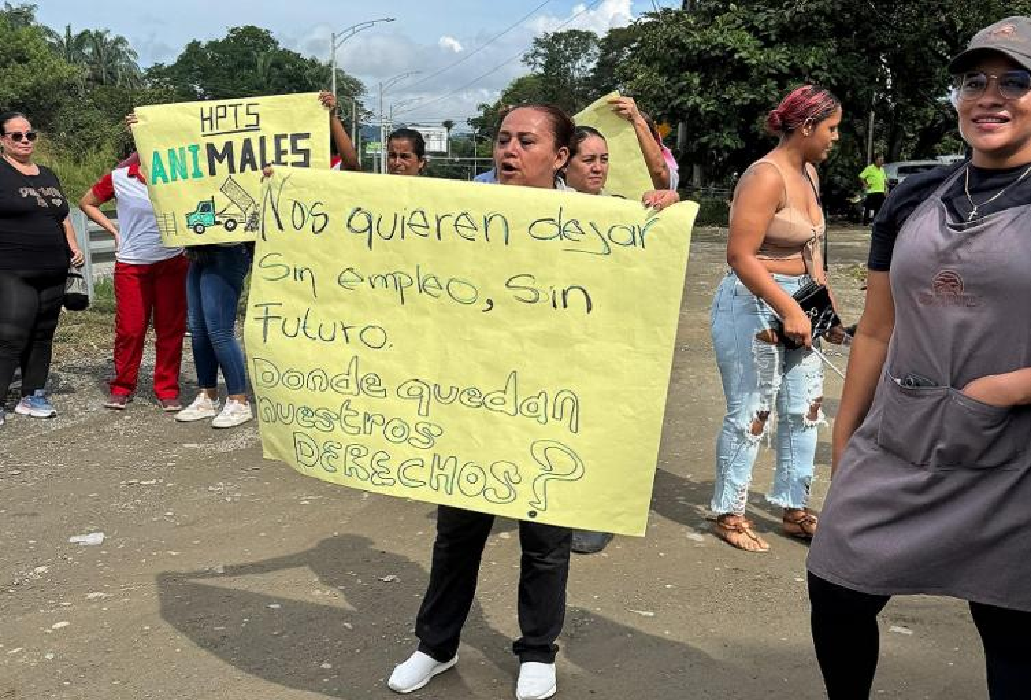 HPTS
ANIMALES
Nos quieren dejar
Sin empleo, Sin
Futuro.
Donde quedan
nuestros
DERECHOS?